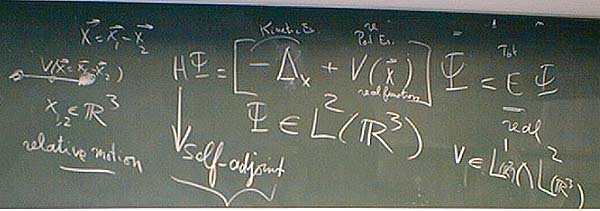 x⃗ = x⃗₁ - x⃗₂
V(x⃗ = x⃗₁ - x⃗₂)
x₁,₂ ∈ ℝ³
relative motion
Kinetic En.
Pot En.
Tot
HΨ = [-Δₓ + V(x⃗)] Ψ = E Ψ
real function
real
Ψ ∈ L²(ℝ³)
self-adjoint
V ∈ L¹(ℝ³) ∩ L²(ℝ³)